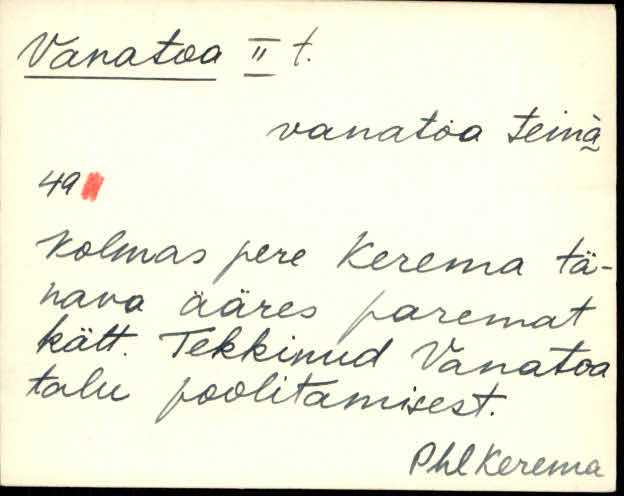 Vanatoa II t.
vanatoa teinà̰
49
Kolmas pere Kerema tä-
nava ääres paremat
kätt. Tekkinud Vanatoa
talu poolitamisest.
Phl Kerema